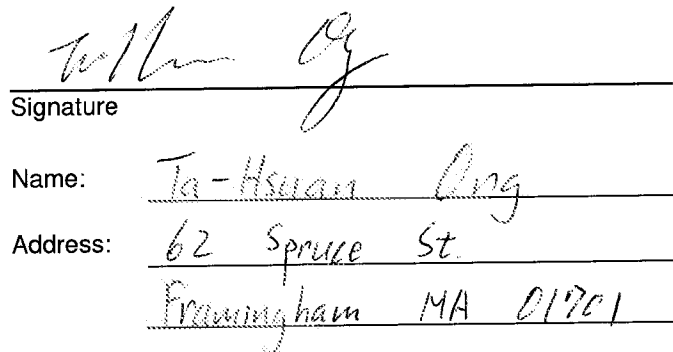 Signature
Name: Ta-Hsuan Ong
Address: 62 Spruce St.
Framingham MA 01701